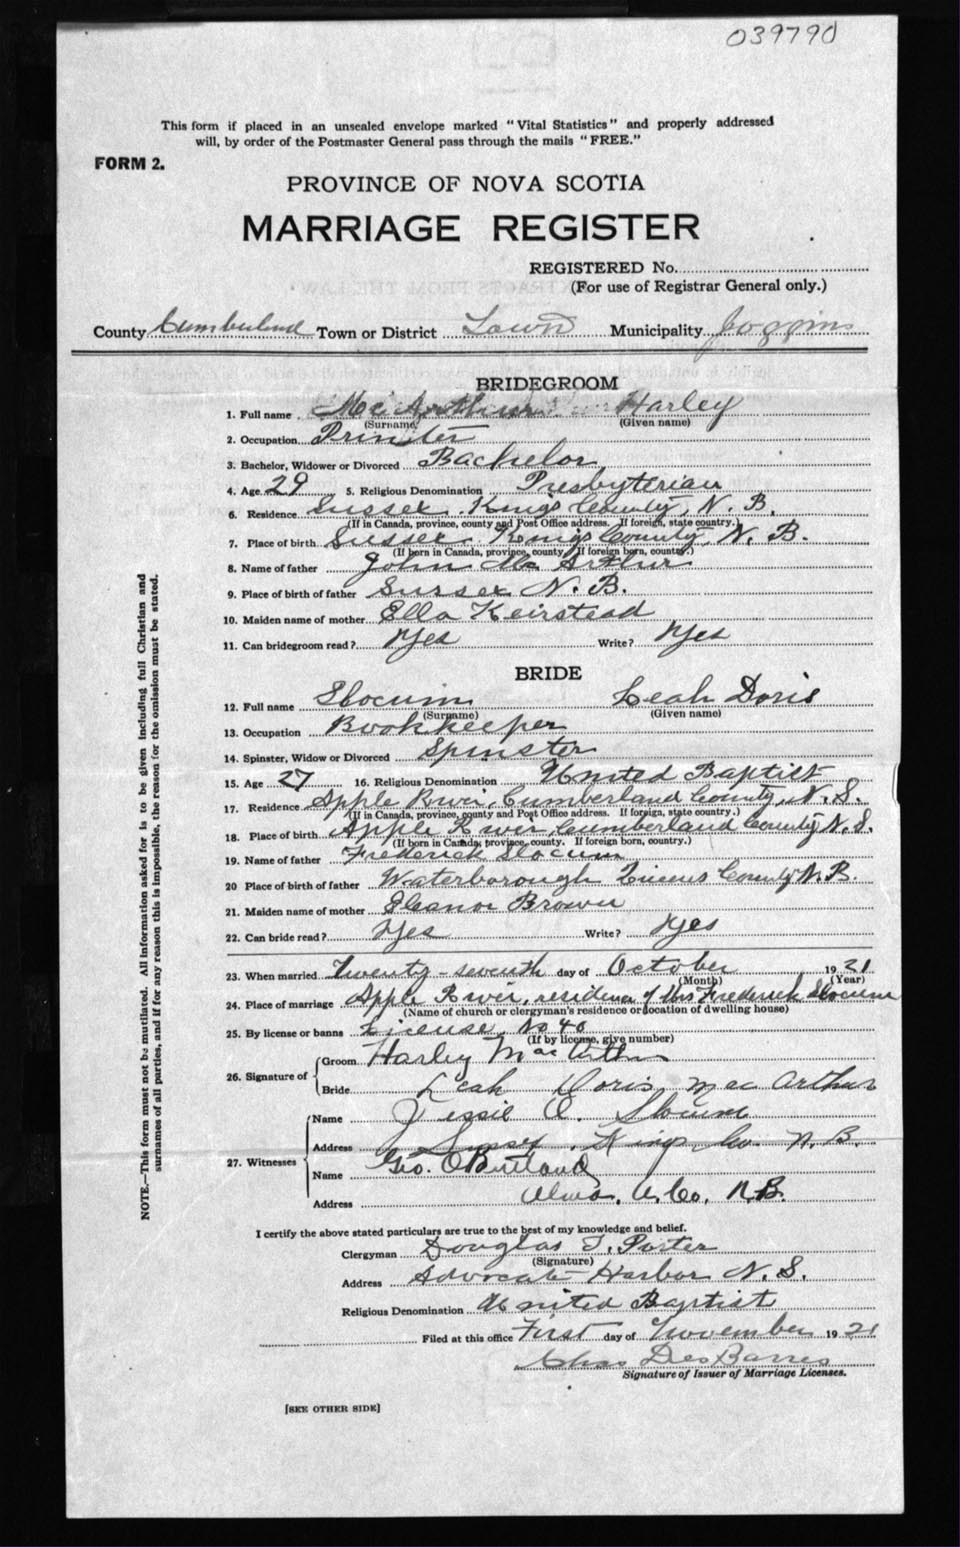 039790
This form if placed in an unsealed envelope marked "Vital Statistics" and properly addressed
will, by order of the Postmaster General pass through the mails "FREE."
FORM 2.
PROVINCE OF NOVA SCOTIA
MARRIAGE REGISTER
REGISTERED No.
(For use of Registrar General only.)
County Cumberland Town or District Town Municipality Joggins
BRIDEGROOM
1. Full name McArthur Harley
(Surname) (Given name)
2. Occupation Printer
3. Bachelor, Widower or Divorced Bachelor
4. Age 29 5. Religious Denomination Presbyterian
6. Residence Sussex Kings County, N. B.
(If in Canada, province, county and Post Office address. If foreign, state country.)
7. Place of birth Sussex Kings County, N. B.
(If born in Canada, province, county. If foreign born, country.)
8. Name of father John McArthur
9. Place of birth of father Sussex N. B.
10. Maiden name of mother Ella Keirstead
11. Can bridegroom read? Yes Write? Yes
BRIDE
12. Full name Slocum Leah Doris
(Surname) (Given name)
13. Occupation Bookkeeper
14. Spinster, Widow or Divorced Spinster
15. Age 27 16. Religious Denomination United Baptist
17. Residence Apple River, Cumberland County, N. S.
(If in Canada, province, county and Post Office address. If foreign, state country.)
18. Place of birth Apple River, Cumberland County N. S.
(If born in Canada, province, county. If foreign born, country.)
19. Name of father Frederick Slocum
20 Place of birth of father Waterborough Queens County N. B.
21. Maiden name of mother Eleanor Brown
22. Can bride read? Yes Write? Yes
23. When married Twenty-seventh day of October 1921
(Month) (Year)
24. Place of marriage Apple River, residence of Mrs Frederick Slocum
(Name of church or clergyman's residence or location of dwelling house)
25. By license or banns License No 40
(If by license, give number)
26. Signature of Groom Harley MacArthur
Bride Leah Doris MacArthur
27. Witnesses Name Jessie A. Slocum
Address Sussex, Kings Co. N. B.
Name Geo.
Address Alma, A. Co, N.B.
I certify the above stated particulars are true to the best of my knowledge and belief.
Clergyman Douglas I. Porter
(Signature)
Address Advocate Harbor N. S.
Religious Denomination United Baptist
Filed at this office First day of November 1921
Chas DesBarres
Signature of Issuer of Marriage Licenses.
[SEE OTHER SIDE]
NOTE.—This form must not be mutilated. All information asked for is to be given including full Christian and
surnames of all parties, and if for any reason this is impossible, the reason for the omission must be stated.